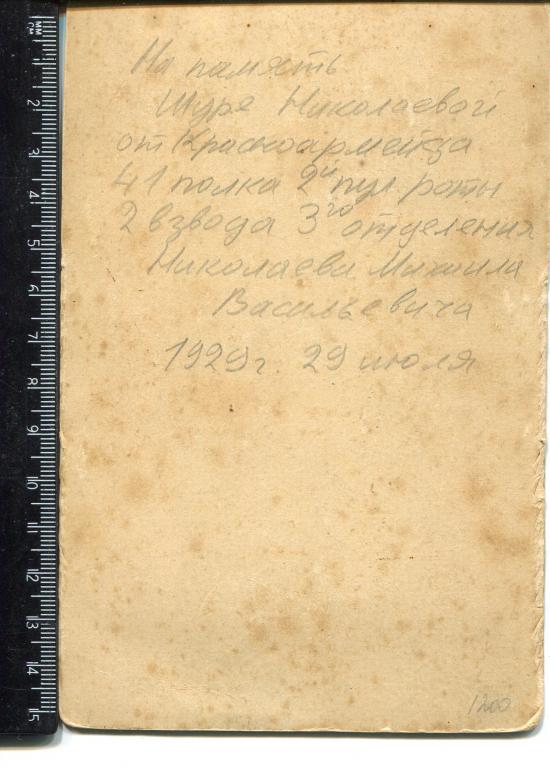 На память
Шуре Николаевой
от Красноармейца
41 полка 2й пул роты
2 взвода 3го отделения
Николаева Михаила
Васильевича
1929г. 29 июля
1200
мм
см
1
2
3
4
5
6
7
8
9
10
11
12
13
14
15